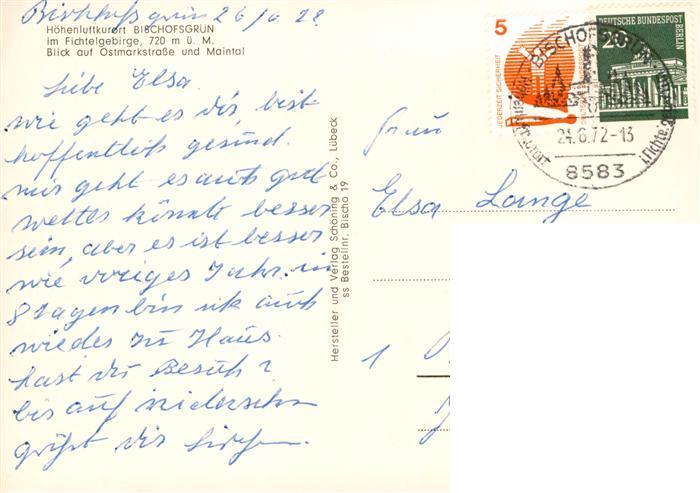 Bischofsgrün 26/6. 72
Höhenluftkurort BISCHOFSGRÜN
im Fichtelgebirge, 720 m ü. M.
Blick auf Ostmarkstraße und Maintal
Liebe Elsa.
wie geht es dir, bist
hoffentlich gesund.
mir geht es auch gut
wetter könnte besser
sein, aber es ist besser
wie voriges Jahr. in
8 tagen bin ich auch
wieder zu Haus
hast du Besuch?
bis auf wiedersehn
grüßt dir
Hersteller und Verlag Schöning & Co., Lübeck
ss Bestellnr. Bischo 19
5
JEDERZEIT SICHERHEIT
DEUTSCHE BUNDESPOST
BERLIN
20
BISCHOFSGRÜN
24.6.72-13
8583
Frau
Elsa Lange
1